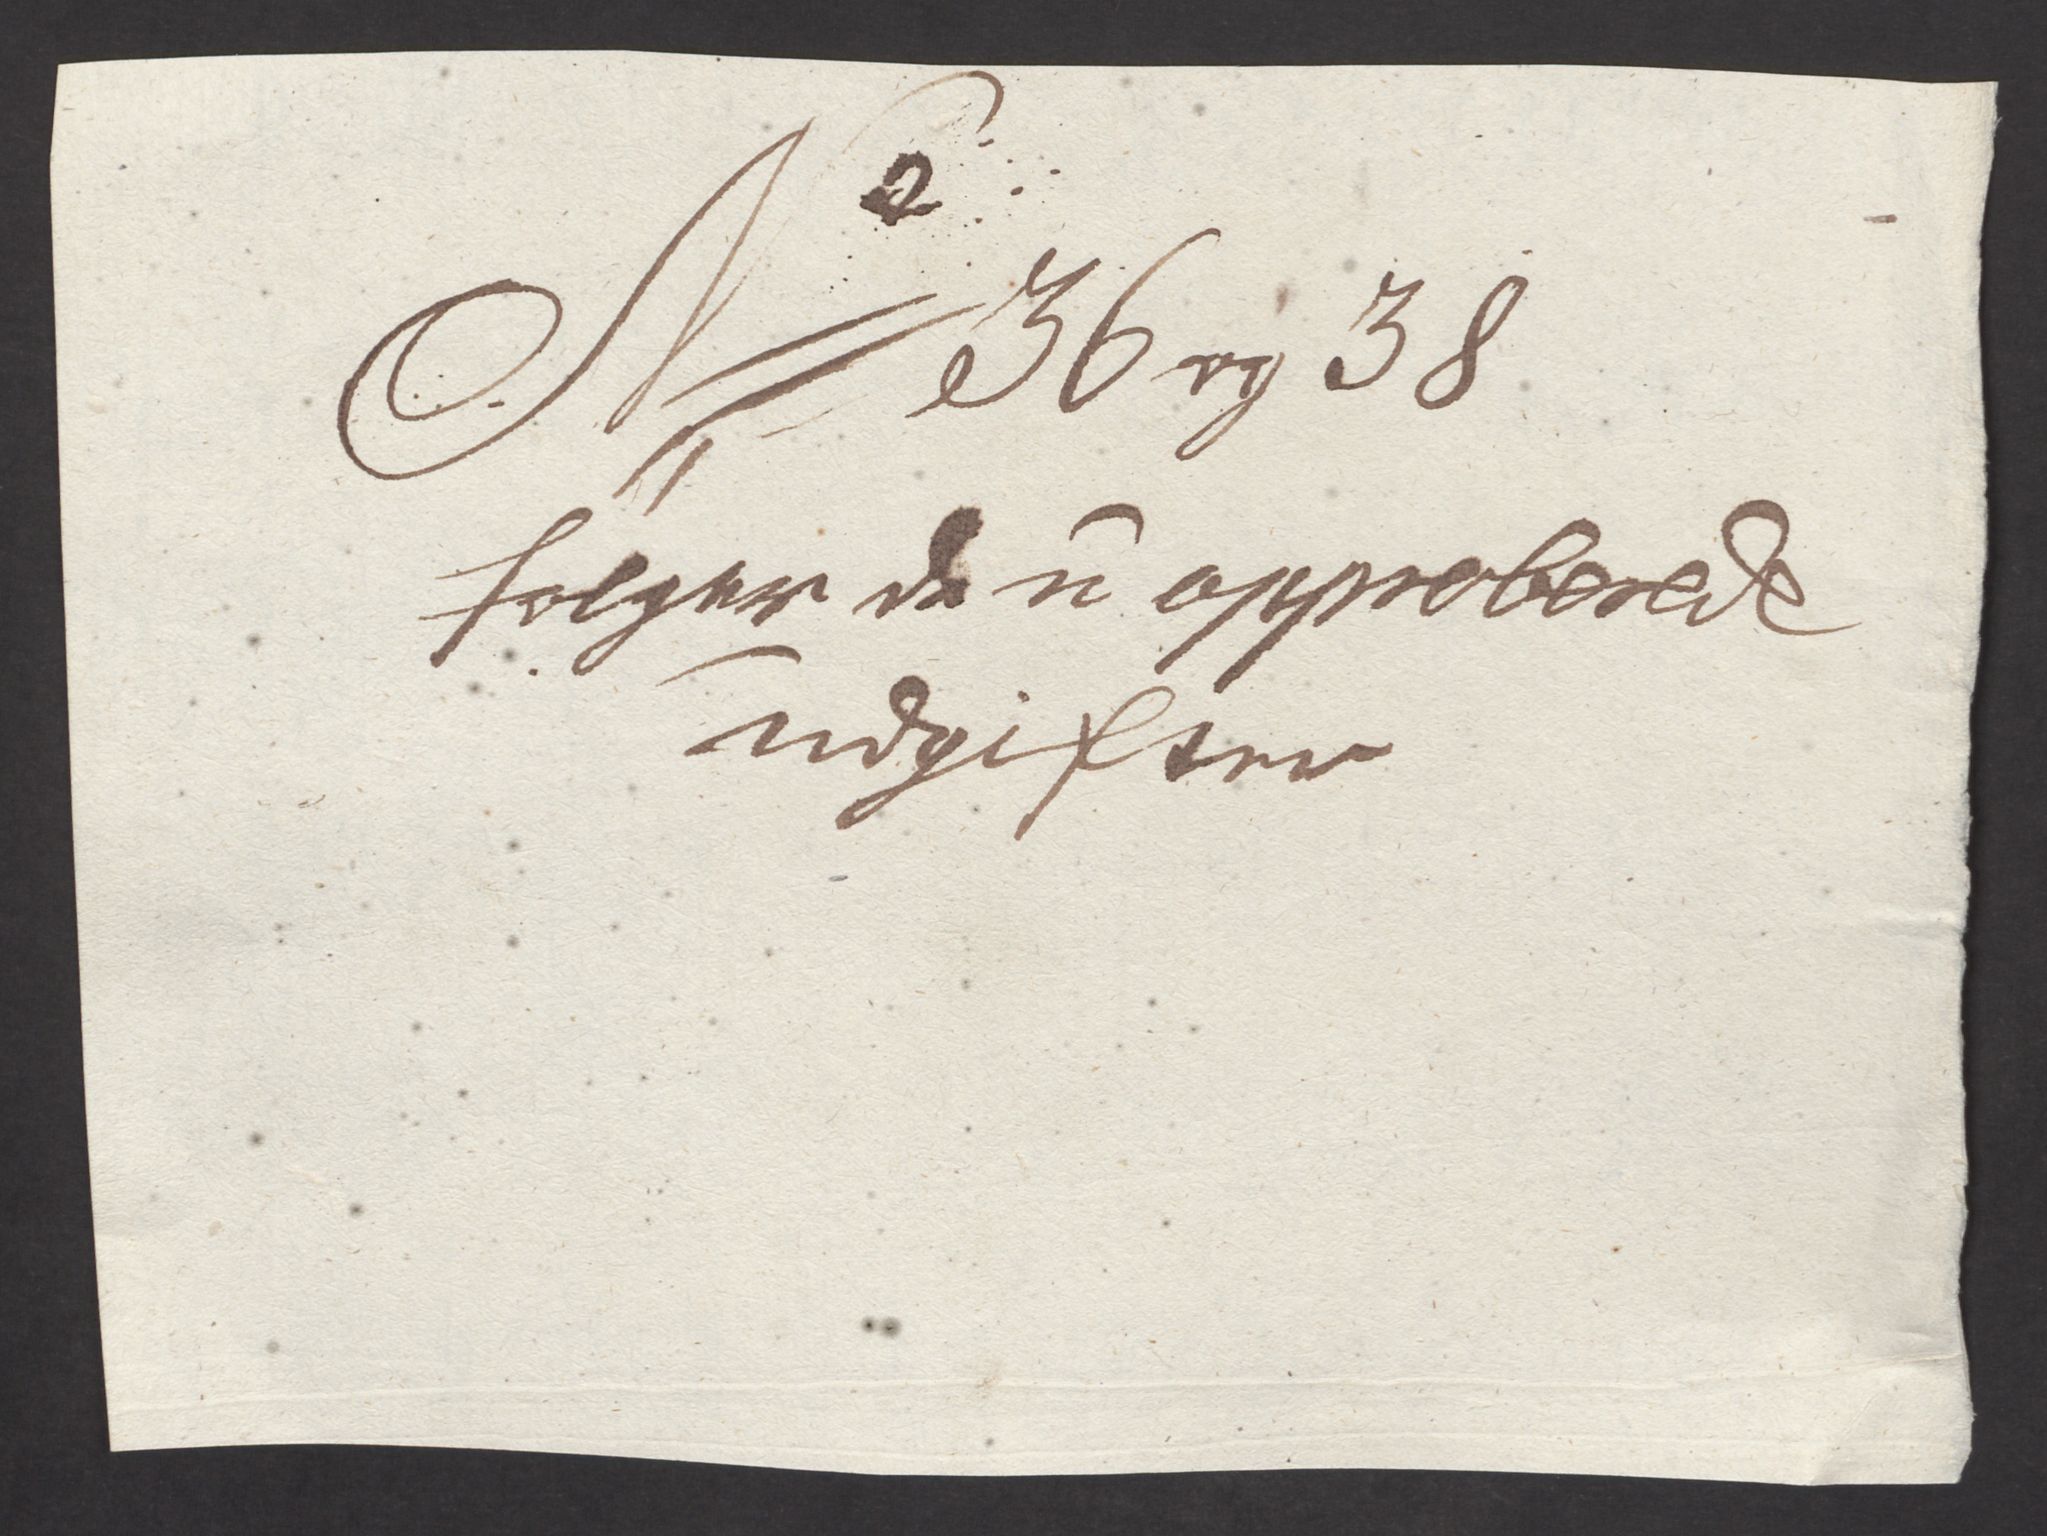 No 36 og 38
følger de ũ approberede
ũdgifter